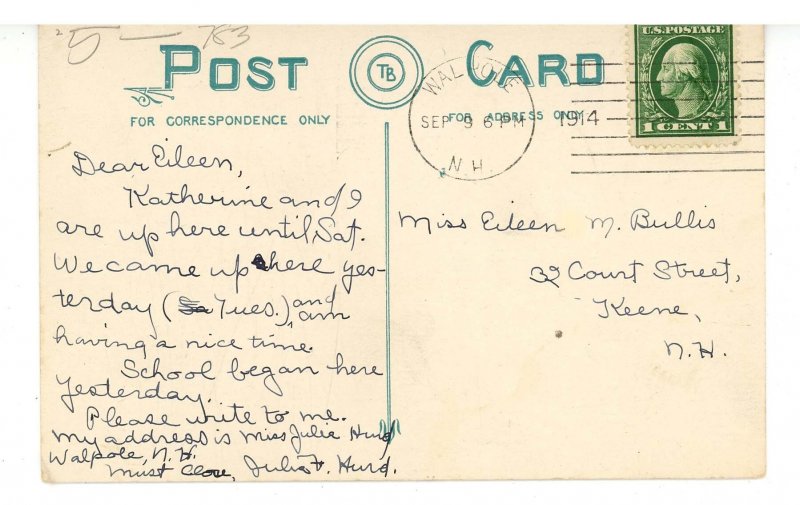 25 — 783
POST CARD
TB
FOR CORRESPONDENCE ONLY
FOR ADDRESS ONLY
WALPOLE
SEP 9 6 PM 1914
N.H.
U.S. POSTAGE
1 CENT 1
Dear Eileen,
Katherine and I
are up here until Sat.
We came up here yes-
terday (Tues.) and am
having a nice time.
School began here
yesterday.
Please write to me.
My address is Miss Julie Hurd
Walpole, N.H.
Must close, Julia F. Hurd.
Miss Eileen M. Bullis
32 Court Street,
Keene,
N.H.